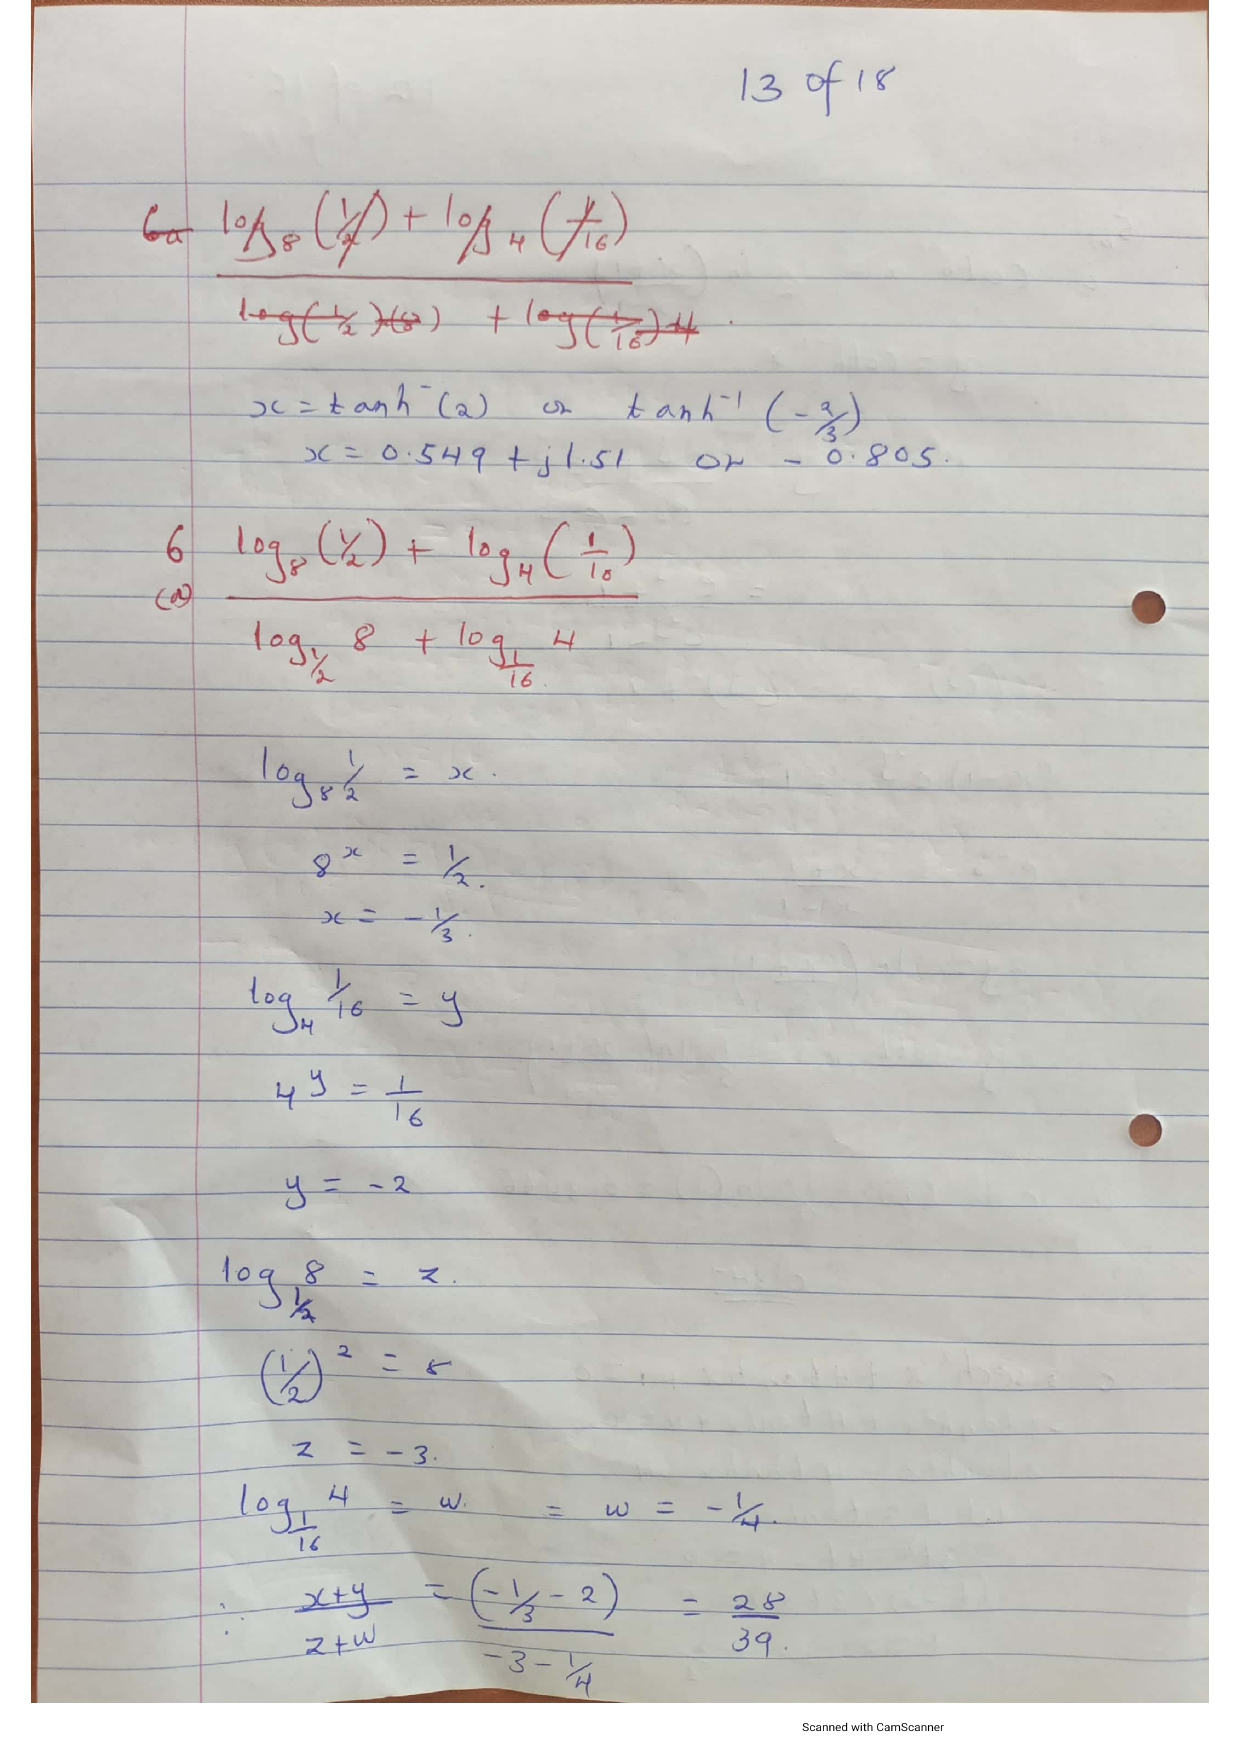 13 of 18
6a log₈(1/2) + log₄(1/16)
log(1/2)(8) + log(1/16)4 .
x = tanh⁻(2) or tanh⁻¹(-2/3)
x = 0.549 + j1.51 or - 0.805.
6 log₈(1/2) + log₄(1/16)
(a)
log_{1/2} 8 + log_{1/16} 4
log₈ 1/2 = x.
8^x = 1/2.
x = -1/3.
log₄ 1/16 = y
4^y = 1/16
y = -2
log_{1/2} 8 = z.
(1/2)^z = 8
z = -3.
log_{1/16} 4 = w. = w = -1/4.
∴ (x+y)/(z+w) = (-1/3 - 2)/(-3 - 1/4) = 28/39.
Scanned with CamScanner